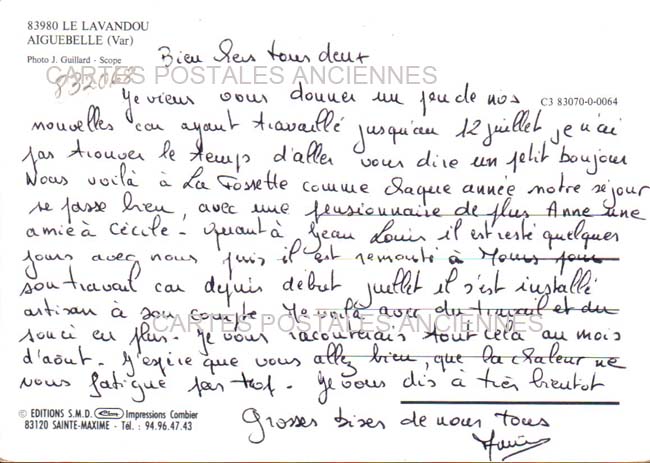 83980 LE LAVANDOU
AIGUEBELLE (Var)
Photo J. Guillard - Scope
Bien chers tous deux
CARTES POSTALES ANCIENNES
832068
C3 83070-0-0064
Je viens vous donner un peu de nos
nouvelles car ayant travaillé jusqu'au 12 juillet, je n'ai
pas trouver le temps d'aller vous dire un petit bonjour
Nous voilà à La Fossette comme chaque année notre séjour
se passe bien, avec une pensionnaire de plus Anne une
amie à Cécile - quant à Jean Louis il est resté quelques
jours avec nous puis il est remonté à pour
son travail car depuis début juillet il s'est installé
artisan à son compte Le voilà avec du travail et du
souci en plus. Je vous raconterais tout cela au mois
CARTES POSTALES ANCIENNES
d'août. J'espère que vous allez bien, que la chaleur ne
vous fatigue pas trop - Je vous dis à très bientot
Grosses bises de nous tous
© EDITIONS S.M.D. Impressions Combier
83120 SAINTE-MAXIME - Tél. : 94.96.47.43